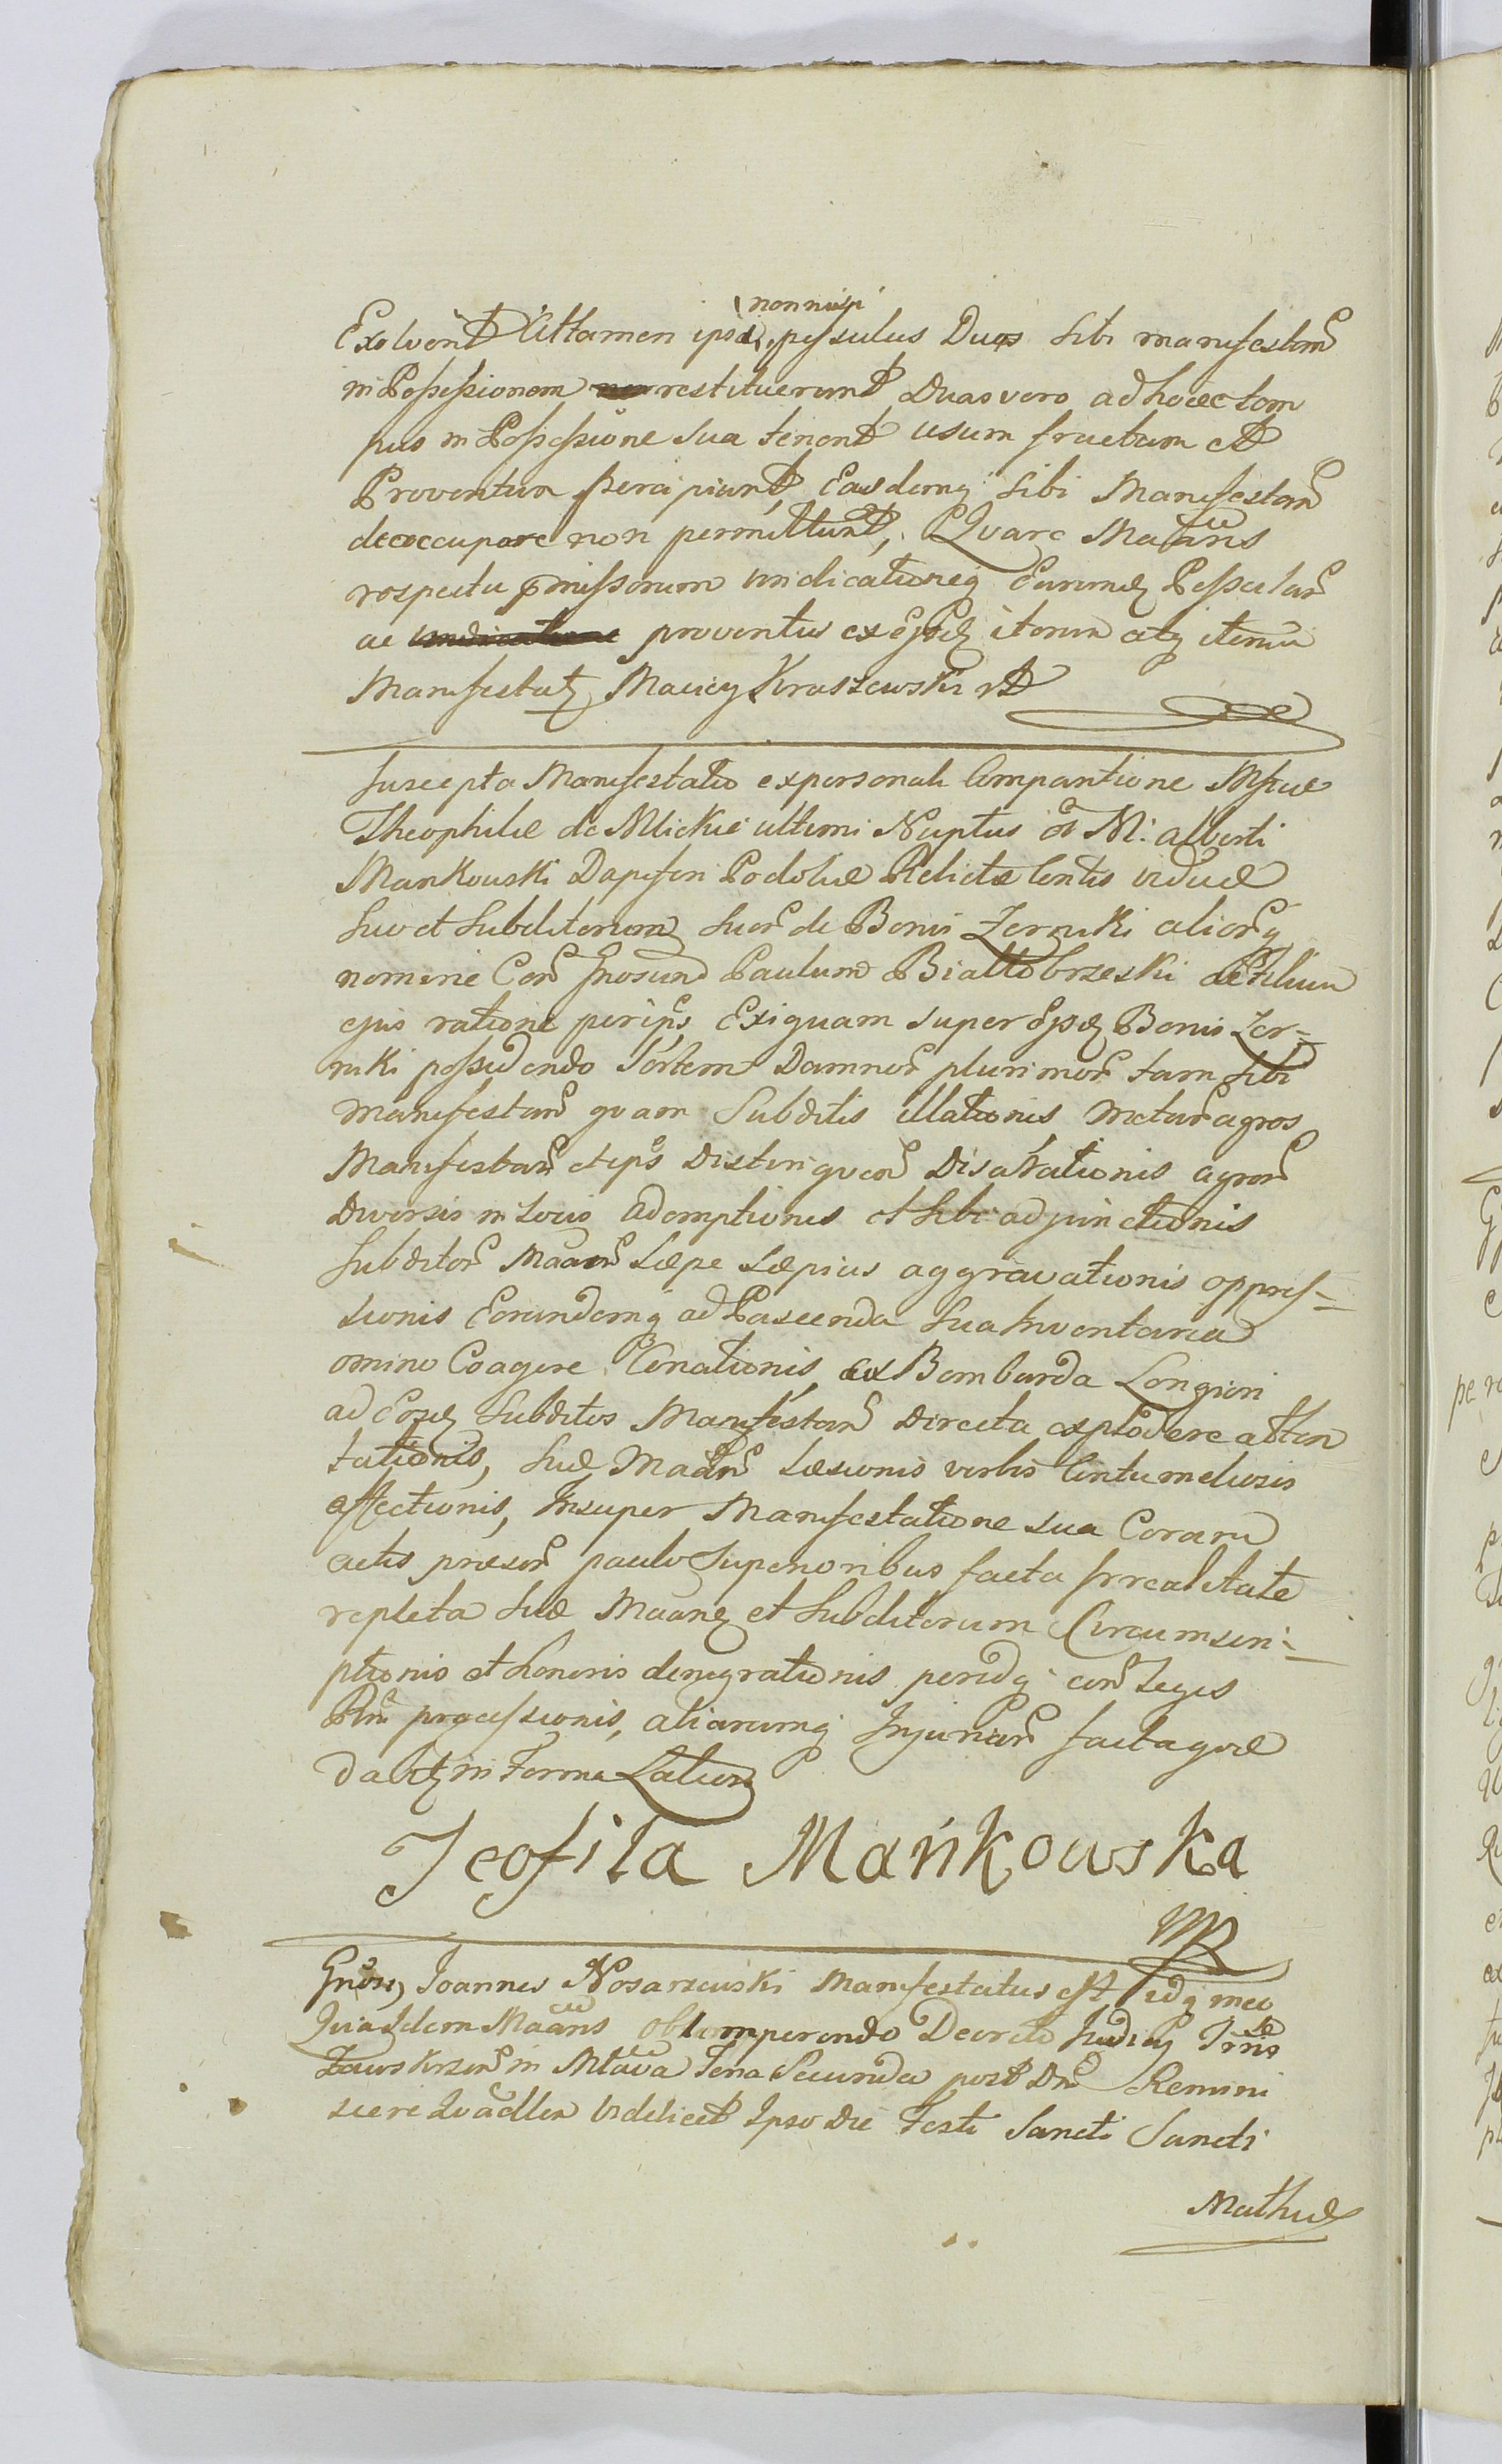 nonnisi
Exolvent Attamen ipsa pessulus Duos sibi manifestan
in Possessionem restituerunt Duas vero ad hocec tem
pus in Possessione sua tenent usum fructum et
Proventum percipiunt, Easdemq sibi Manifestan
deoccupare non permittunt, Qvare Maans
respectu pmissorum vindicationeq Earumd Pessular
ac proventus ex eisd iterum atq iterum
Manifestat Maciey Kraszewski
Suscepta Manifestatio ex personali Comparitione Mfice
Theophilæ de Mlickie ultimi Nuptus M: Alberti
Mankouski Dapiferi Podoliæ Relictæ Contis viduæ
Suo et Subditorum suor de Bonis Zeronki alior q
nomine Con Gnosum Paulum Białłobrzeski et Filium
ejus ratione per ips Exiguam super eisd Bonis Zer-
niki possidendo Sortem Damnor plurimor tam sibi
manifestan qvam Subditis illationis metar agros
Manifestan et ips Distinqven Disarationis agror
Diversis in Locis ademptionis et sibi adjunctionis
Subditor Maan Sæpe Sæpius aggravationis oppres-
sionis Eorundemq ad Pascenda sua Inventaria
omino Coagere Conationis ex Bombarda Longiori
ad Eosd Subditos Manifestan directa explodere atten
tationis, Suæ Maan Læsionis verbis Contumeliosis
affectionis, Insuper Manifestatione sua Coram
actis præsen paulo Superioribus facta Irrealitate
repleta Suæ Maane et Subditorum Circumscri-
ptionis et honoris denigrationis peridq con Leges
Pln processionis, aliarumq Injuriar facta qvæ
dabit in Forma Latiori
Teofila Mańkowska
MP
Gnosus Joannes Nosarzewski Manifestatus est idq mee
Quia Idem Maans obtemperando Decreto Judicy Trris
Zawskrzen in Mlava Feria Secunda post Dn Remini
scere Qvadlen videlicet Ipso Die Festi Sancti Sancti
Mathiæ